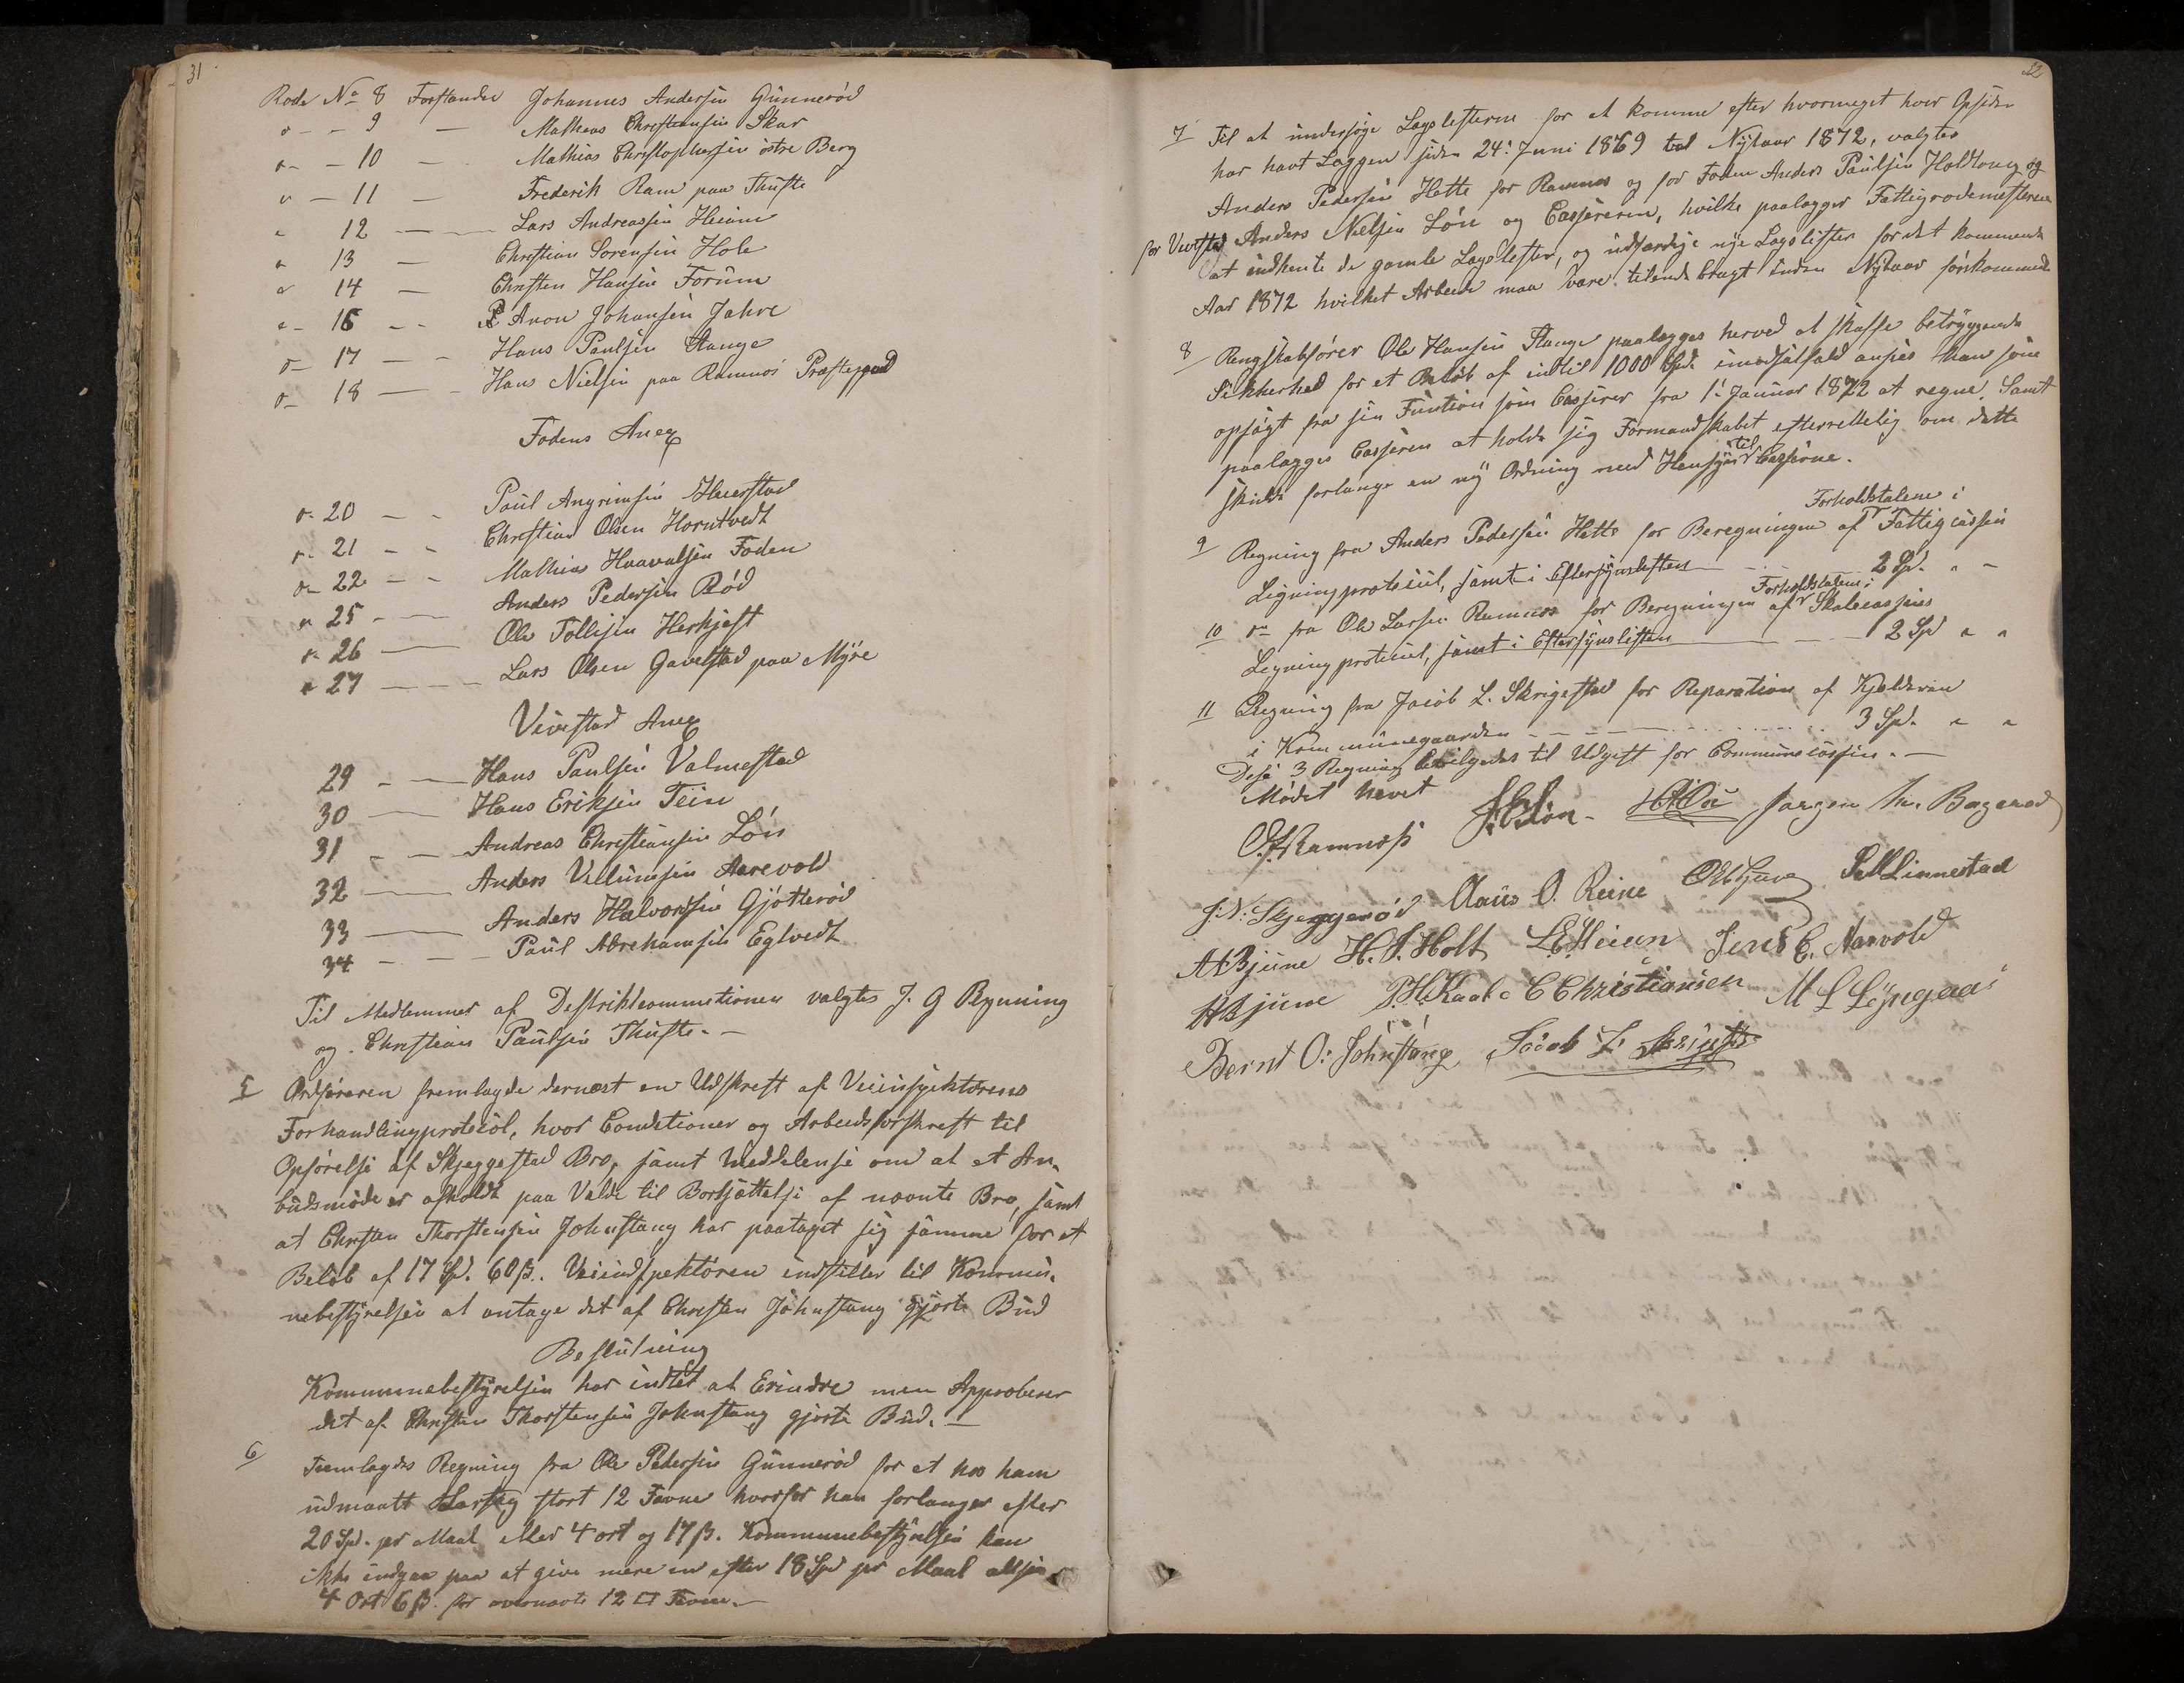 31
Rode No 8 Forstander Johannes Andersen Gunnerød
" - - 9 — Mathias Christiansen Skar
" - - 10 — Mathias Christophersen østre Berg
" - 11 — Frederik Ram paa Thufte
" 12 — Lars Andreassen Heian
" 13 — Christian Sørensen Hole
" 14 — Christen Hansen Forum
" - 16 - - Aron Johansen Jahre
" - 17 — - Hans Paulsen Stange
" - 18 — - Hans Nielsen paa Ramnes Præstegaard
Fodens Anex
" 20 — - Paul Angrimsen Huerstad
" 21 - - Christian Olsen Horntvedt
" 22 - - Mathias Haavalsen Foden
" 25 - — Anders Pedersen Rød
" 26 — Ole Tollefsen Herkjøst
" 27 — Lars Olsen Gavelstad paa Myre
Vivestad Anex
29 - — Hans Paulsen Valmestad
30 — Hans Eriksen Tein
31 - — Andreas Christiansen Løn
32 — Anders Villumsen Aarevold
33 — Anders Halvorsen Gjøtterød
34 - - - Paul Abrahamsen Egtvedt
Til Medlemmer af Distriktcommissionen valgtes J. G Bryning
og Christian Paulsen Thufte. —
5 Ordføreren fremlagde dernæst en Udskrift af Veiinspektørens
Forhandlingprotocol, hvor Conditioner og Arbeidsforskrift til
Opførelse af Skjeggestad Bro, samt Meddelense om at et An-
budsmøde er afholdt paa Valde til Bortsættelse af nævnte Bro, samt
at Christen Thorstensen Johnstang har paataget sig samme for et
Beløb af 17 Spd. 60 ß. Veiindspektøren indstiller til Kommu-
nebestyrelsen at antage det af Christen Johnstang gjorte Bud
Beslutning
Kommunebestyrelsen har indtet at Erindre men Approberer
det af Christen Thorstensen Johnstang gjorte Bud. —
6 Fremlagdes Regning fra Ole Pedersen Gunnerød for et hos ham
udmaalt stort 12 Favne hvorfor han forlanger efter
20 Spd. pr Maal eller 4 ort og 17 ß. Kommunebestyrelsen kan
ikke indgaa paa at give mere en efter 18 Spd pr Maal altsaa
4 Ort 6 ß for 12 □ Favne. —
32
7 Til at undersøge Lægslisterne for at komme efter hvormeget hver Opsider
har havt Læggen siden 24. Juni 1869 til Nytaar 1872, valgtes
Anders Pedersen Hatte for Ramnes og for Foden Anders Paulsen Holtung og
for Vivestad Anders Nielsen Løn og Cassereren, hvilke paalægger Fattigrodemesterne
at indhente de gamle Lægslister, og udfærdige nye Lægslister for det kommende
Aar 1872 hvilket Arbeide maa være tilendebragt inden Nytaar førkommende
8 Regnskabsfører Ole Hansen Stange paalægges herved at skaffe betryggende
Sikkerhed for et Beløb af indtil 1000 Spd. imodsatfald ansees han som
opsagt fra sin Funtion som Casserer fra 1. Januar 1872 at regne. Samt
paalægges Casseren at holde sig Formandskabet efterrettelig om dette
skulde forlange en ny Ordning med Hensyn til Casserne.
9 Regning fra Anders Pedersen Hatte for Beregningen af Forholdstalene i Fattigcassen
Ligningprotocol, samt i Eftersynslisten — - 2 Sp. " -
10 do fra Ole Larsen Ramnes for Beregningen af Forholdstalene i Skolecassens
Ligningprotocol, samt i Eftersynslisten — - — 2 Spd " "
11 Regning fra Jacob L. Skrigestad for Reparation af Kjelderen
i Kommunegaarden - - - - 3 Spd. " "
Disse 3 Regning bevilgedes til Udgift for Communecassen. —
Mødet hævet
O. Ramnæss Jørgen Hr. Bagerød
J. N. Skjeggerød Claus O. Reine P. M Linnestad
A A Bjune H. J. Holt L E Heian Jens C. Narvold
H Bjune P. H. Kaal C Christiansen M L Lyngaas
Bernt O. Johnstang Jacob L. Skrigestad